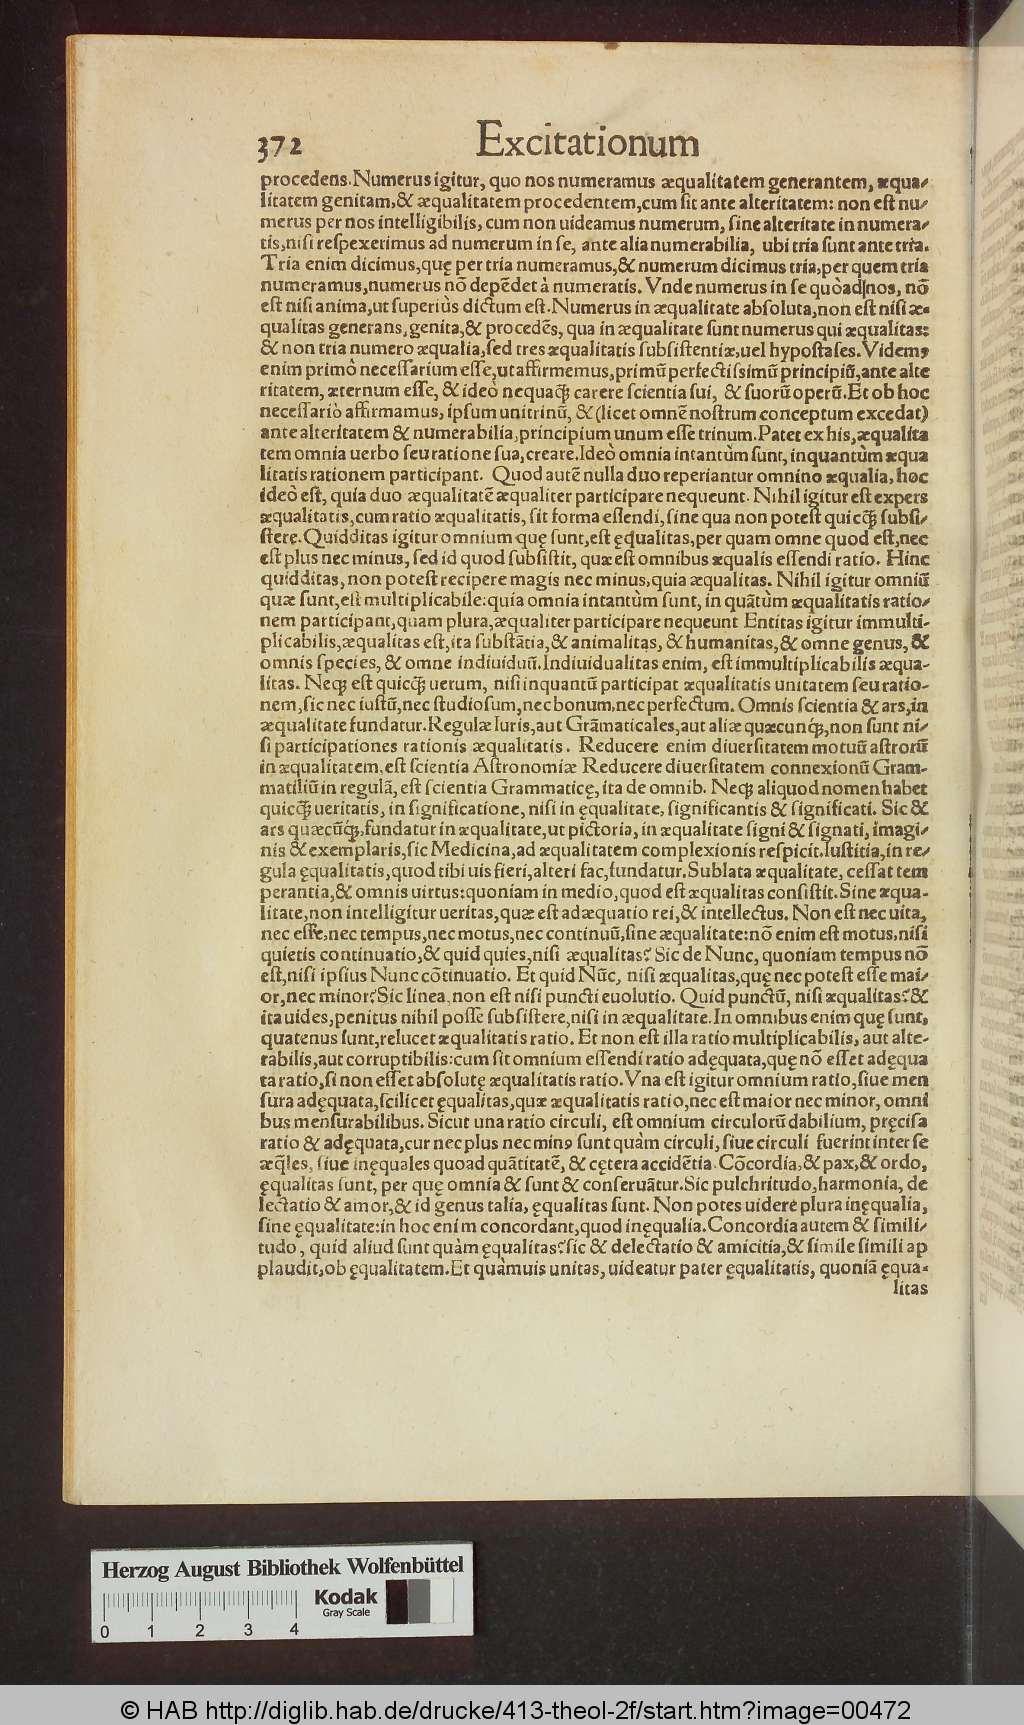 372 Excitationum
procedens. Numerus igitur, quo nos numeramus æqualitatem generantem, æqua⸗
litatem genitam, & æqualitatem procedentem, cum sit ante alteritatem: non est nu⸗
merus per nos intelligibilis, cum non uideamus numerum, sine alteritate in numera⸗
tis, nisi respexerimus ad numerum in se, ante alia numerabilia, ubi tria sunt ante tria.
Tria enim dicimus, quę per tria numeramus, & numerum dicimus tria, per quem tria
numeramus, numerus nõ depẽdet à numeratis. Vnde numerus in se quòad nos, nõ
est nisi anima, ut superiùs dictum est. Numerus in æqualitate absoluta, non est nisi æ⸗
qualitas generans, genita, & procedẽs, qua in æqualitate sunt numerus qui æqualitas:
& non tria numero æqualia, sed tres æqualitatis subsistentiæ, uel hypostases. Videmꝰ
enim primò necessarium esse, ut affirmemus, primũ perfectissimũ principiũ, ante alte
ritatem, æternum esse, & ideò nequaꝗ̃ carere scientia sui, & suorũ operũ. Et ob hoc
necessariò affirmamus, ipsum unitrinũ, & (licet omnẽ nostrum conceptum excedat)
ante alteritatem & numerabilia, principium unum esse trinum. Patet ex his, æqualita
tem omnia uerbo seu ratione sua, creare. Ideò omnia intantùm sunt, inquantùm æqua
litatis rationem participant. Quod autẽ nulla duo reperiantur omnino æqualia, hoc
ideò est, quía duo æqualitatẽ æqualiter participare nequeunt. Nihil igitur est expers
æqualitatis, cum ratio æqualitatis, sit forma essendi, sine qua non potest quicꝗ̃ subsi⸗
stere. Quidditas igitur omnium quę sunt, est ęqualitas, per quam omne quod est, nec
est plus nec minus, sed id quod subsistit, quæ est omnibus æqualis essendi ratio. Hinc
quidditas, non potest recipere magis nec minus, quia æqualitas. Nihil igitur omniũ
quæ sunt, est multiplicabile: quía omnia intantùm sunt, in quãtùm æqualitatis ratio⸗
nem participant, quam plura, æqualiter participare nequeunt Entitas igitur immulti-
plicabilis, æqualitas est, ita substãtia, & animalitas, & humanitas, & omne genus, &
omnis species, & omne indiuiduũ. Indiuidualitas enim, est immultiplicabilis æqua-
litas. Neq; est quicꝗ̃ uerum, nisi inquantũ participat æqualitatis unitatem seu ratio-
nem, sic nec iustũ, nec studiosum, nec bonum, nec perfectum. Omnis scientia & ars, in
æqualitate fundatur. Regulæ Iuris, aut Grãmaticales, aut aliæ quæcunq;, non sunt ni-
si participationes rationis æqualitatis. Reducere enim diuersitatem motuũ astrorũ
in æqualitatem, est scientia Astronomiæ Reducere diuersitatem connexionũ Gram-
matiliũ in regulã, est scientia Grammaticę, ita de omnib. Neq; aliquod nomen habet
quicꝗ̃ ueritatis, in significatione, nisi in ęqualitate, significantis & significati. Sic &
ars quæcũq;, fundatur in æqualitate, ut pictoria, in æqualitate signi & signati, imagi⸗
nis & exemplaris, sic Medicina, ad æqualitatem complexionis respicit. Iustitia, in re⸗
gula ęqualitatis, quod tibi uis fieri, alteri fac, fundatur. Sublata æqualitate, cessat tem
perantia, & omnis uirtus: quoniam in medio, quod est æqualitas consistit. Sine æqua-
litate, non intelligitur ueritas, quæ est adæquatio rei, & intellectus. Non est nec uita,
nec esse, nec tempus, nec motus, nec continuũ, sine æqualitate: nõ enim est motus, nisi
quietis continuatio, & quid quies, nisi æqualitas? Sic de Nunc, quoniam tempus nõ
est, nisi ipsius Nunc cõtinuatio. Et quid Nũc, nisi æqualitas, quę nec potest esse mai⸗
or, nec minor? Sic linea, non est nisi puncti euolutio. Quid punctũ, nisi æqualitas? &
ita uides, penitus nihil posse subsistere, nisi in æqualitate. In omnibus enim quę sunt,
quatenus sunt, relucet æqualitatis ratio. Et non est illa ratio multiplicabilis, aut alte-
rabilis, aut corruptibilis: cum sit omnium essendi ratio adęquata, quę nõ esset adęqua
ta ratio, si non esset absolutę æqualitatis ratio. Vna est igitur omnium ratio, siue men
sura adęquata, scilicet ęqualitas, quæ æqualitatis ratio, nec est maior nec minor, omni
bus mensurabilibus. Sicut una ratio circuli, est omnium circulorũ dabilium, pręcisa
ratio & adęquata, cur nec plus nec minꝰ sunt quàm circuli, siue circuli fuerint inter se
æq̃les, siue inęquales quoad quãtitatẽ, & cętera accidẽtia. Cõcordia, & pax, & ordo,
ęqualitas sunt, per quę omnia & sunt & conseruãtur. Sic pulchritudo, harmonia, de
lectatio & amor, & id genus talia, ęqualitas sunt. Non potes uidere plura inęqualia,
sine ęqualitate: in hoc enim concordant, quod inęqualia. Concordia autem & simili⸗
tudo, quid aliud sunt quàm ęqualitas? sic & delectatio & amicitia, & simile simili ap
plaudit, ob ęqualitatem. Et quàmuis unitas, uideatur pater ęqualitatis, quoniã ęqua⸗
litas
Herzog August Bibliothek Wolfenbüttel
Kodak
Gray Scale
0 1 2 3 4
© HAB http://diglib.hab.de/drucke/413-theol-2f/start.htm?image=00472